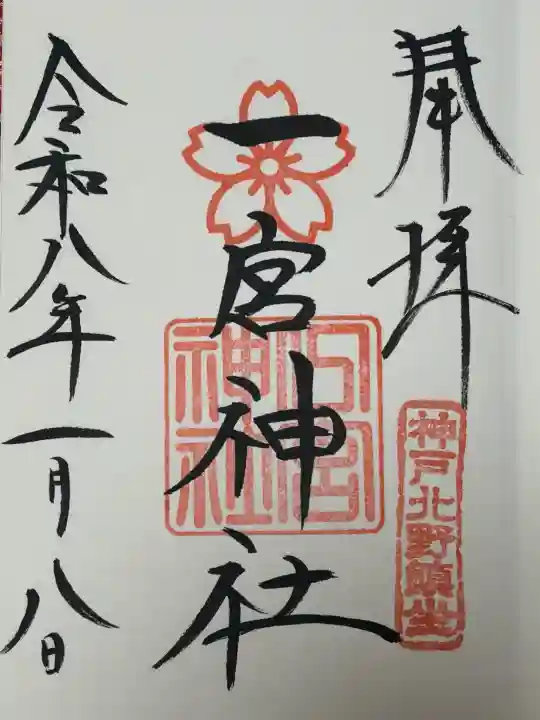 奉拝
神戸北野鎮坐
一宮神社
一宮神社
令和八年一月八日